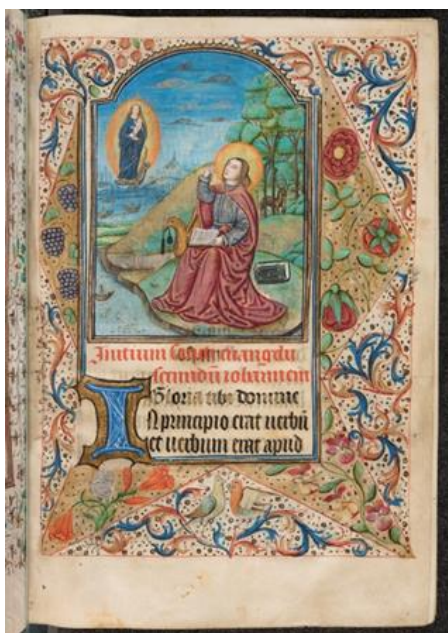 Initium sancti evangelii
secundū iohannem
Gloria tibi domine
In principio erat uerbū
et uerbum erat apud